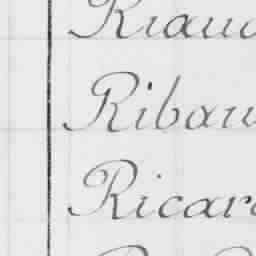 Riau
Ribau
Ricar